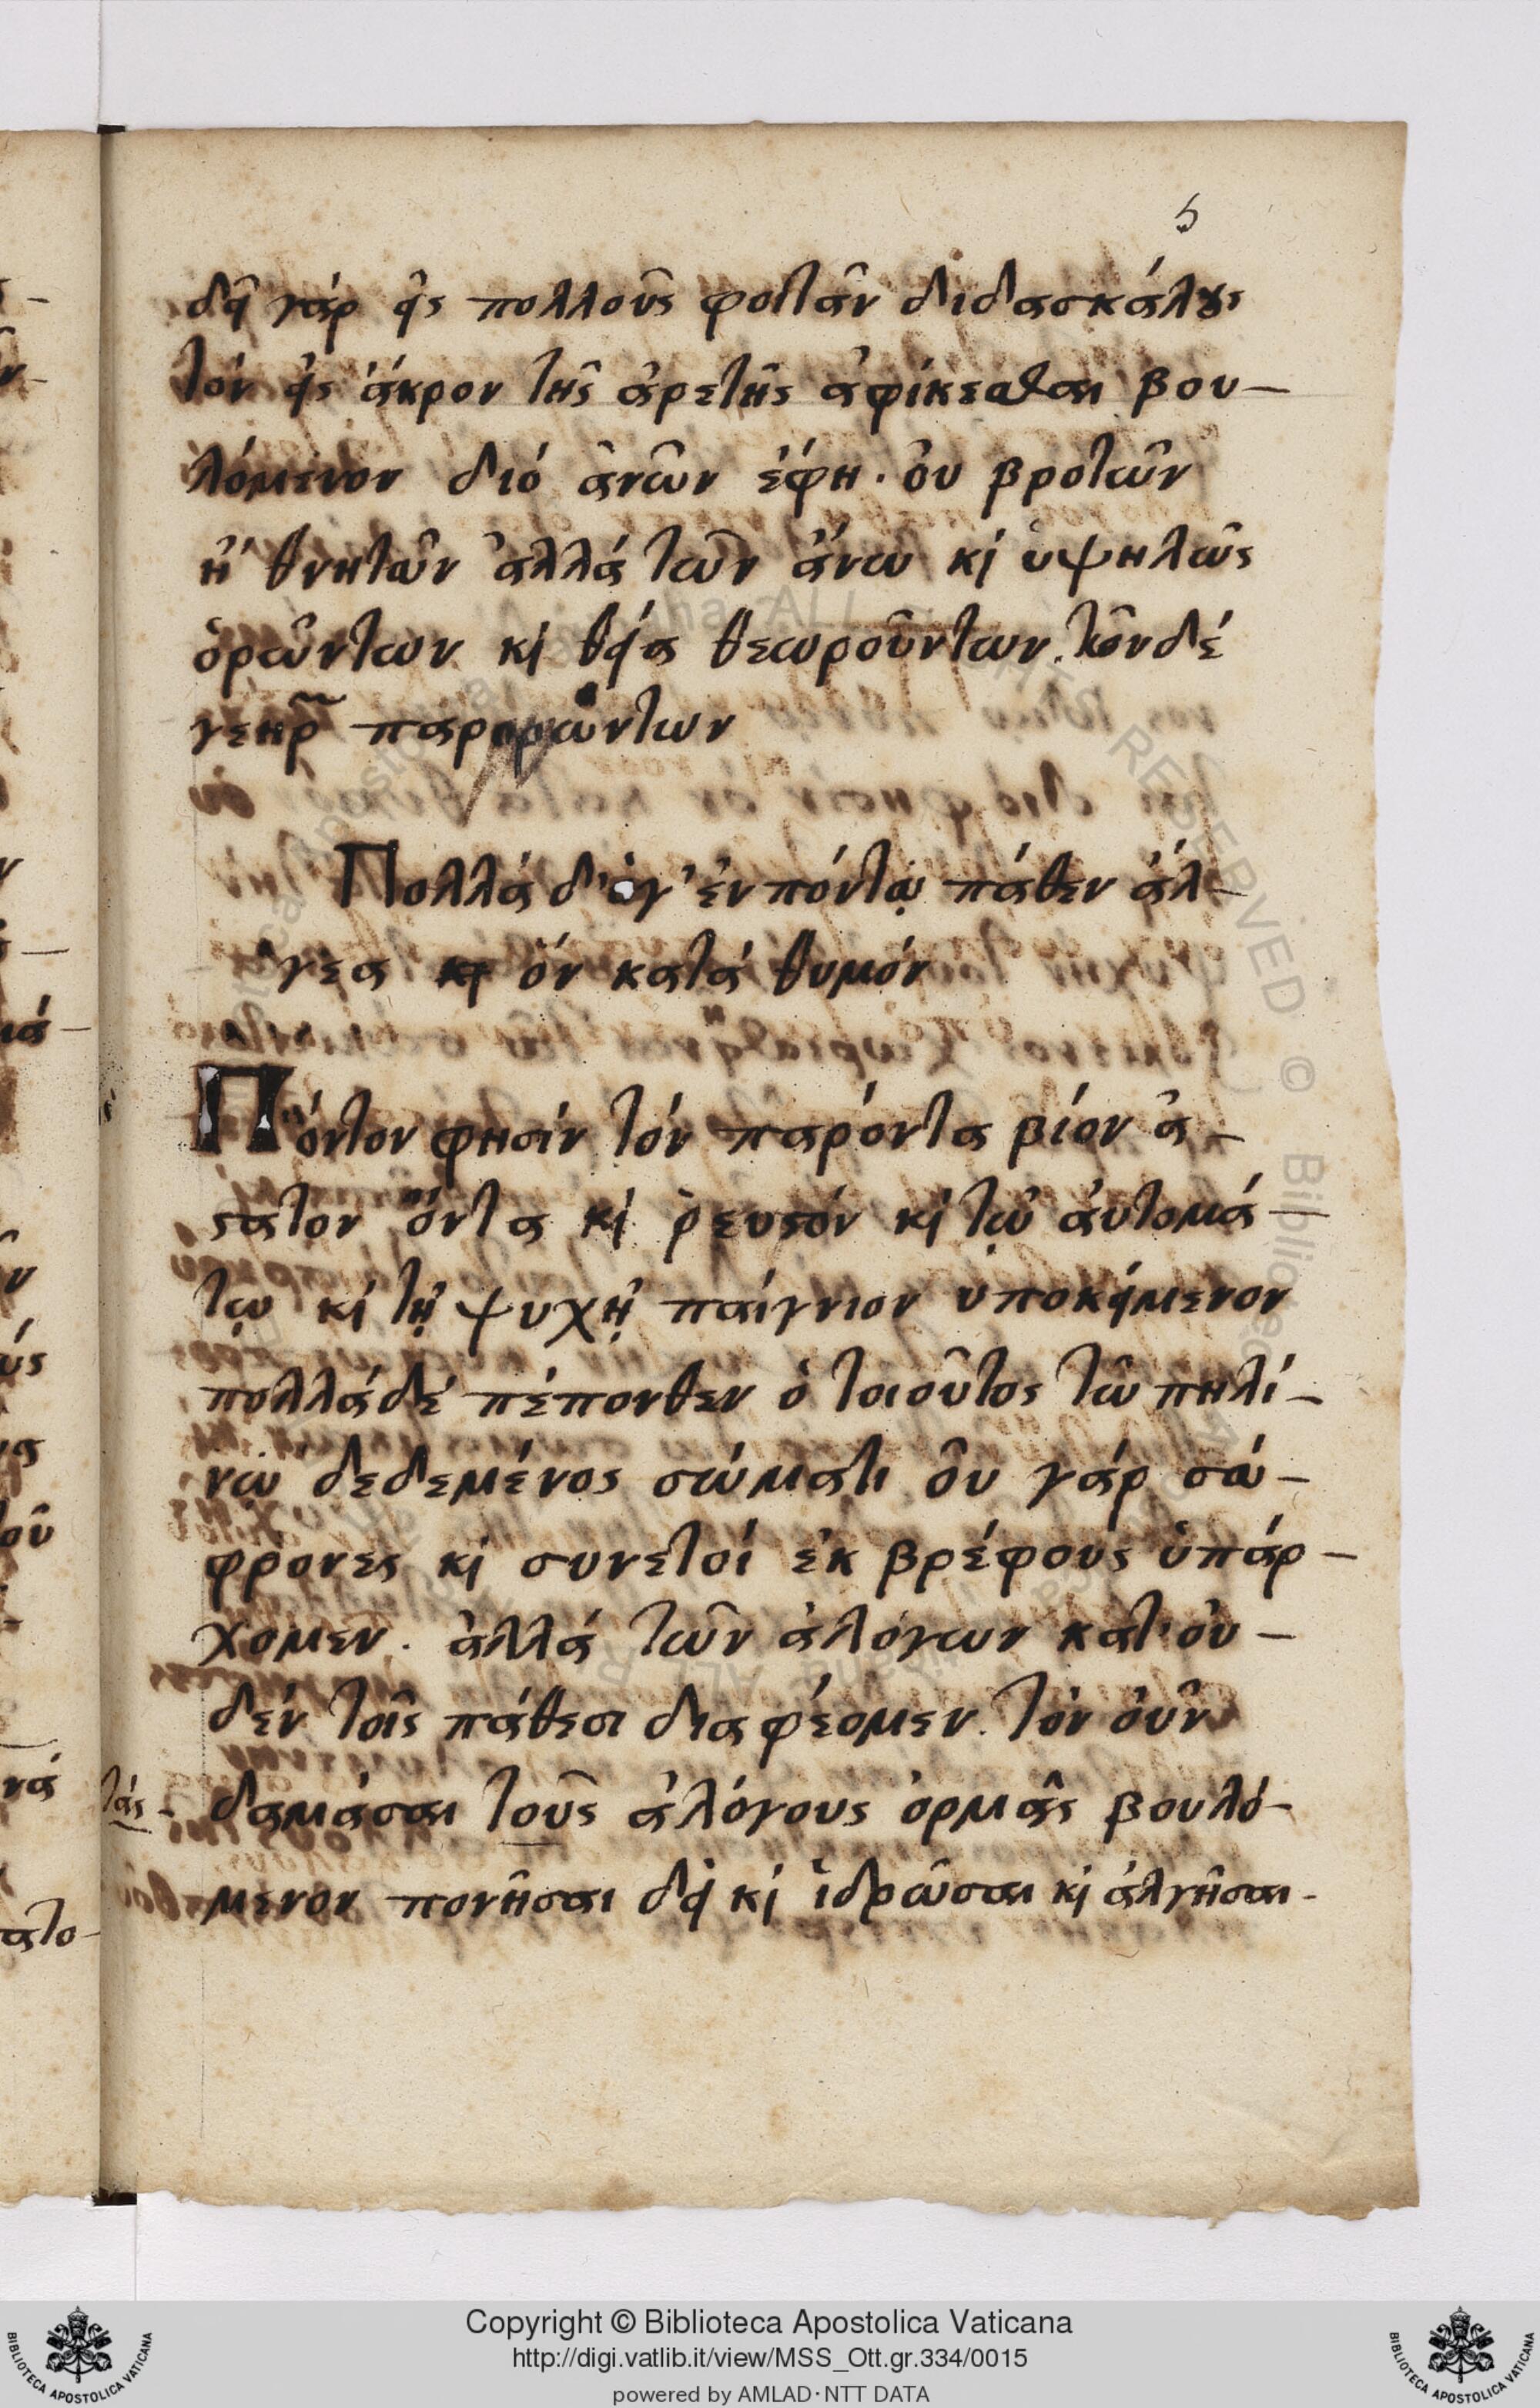 5
δεῖ γάρ εἰς πολλοῦς φοιτᾶν διδασκάλȣς
τόν εἰς ἄκρον τῆς ἀρετῆς ἀφίκεσθαι βου-
λόμενον διό ἀνῶν ἔφη · ὀυ βροτῶν
ἤ θνητῶν ἀλλά τῶν ἄνω κὶ ὑψηλῶς
ὁρώντων κὶ θεία θεωροῦντων. τῶνδέ
γεηρ̃ παρορώντων
Πολλά δ'ὅγ' ἐν πόντῳ πάθεν ἄλ-
γεα ὅν κατά θυμόν
Πόντον φησίν τόν παρόντα βίον ἄ-
ϛατον ὄντα κὶ ῥευϛόν κὶ τῷ ἀυτομά-
τῳ κὶ τῇ ψυχῇ παίγνιον ὑποκείμενον
πολλά δέ πέπονθεν ὁ τοιοῦτος τῶ πηλί-
νω δεδεμένος σώματι ὀυ γάρ σώ-
φρονες κὶ συνετοί ἐκ βρέφους ὑπάρ-
χομεν. ἀλλά τῶν ἀλόγων κατ' ὀυ-
δέν τοῖς πάθεσι διαφέομεν. τόν ὀῦν
τάς - δαμάσαι τοῦς ἀλόγους ὁρμᾶς βουλό-
μενον πονῆσαι δεῖ κὶ ἱδρῶσαι κὶ ἀλγῆσαι -
Copyright © Biblioteca Apostolica Vaticana
http://digi.vatlib.it/view/MSS_Ott.gr.334/0015
powered by AMLAD·NTT DATA
BIBLIOTECA APOSTOLICA VATICANA
BIBLIOTECA APOSTOLICA VATICANA